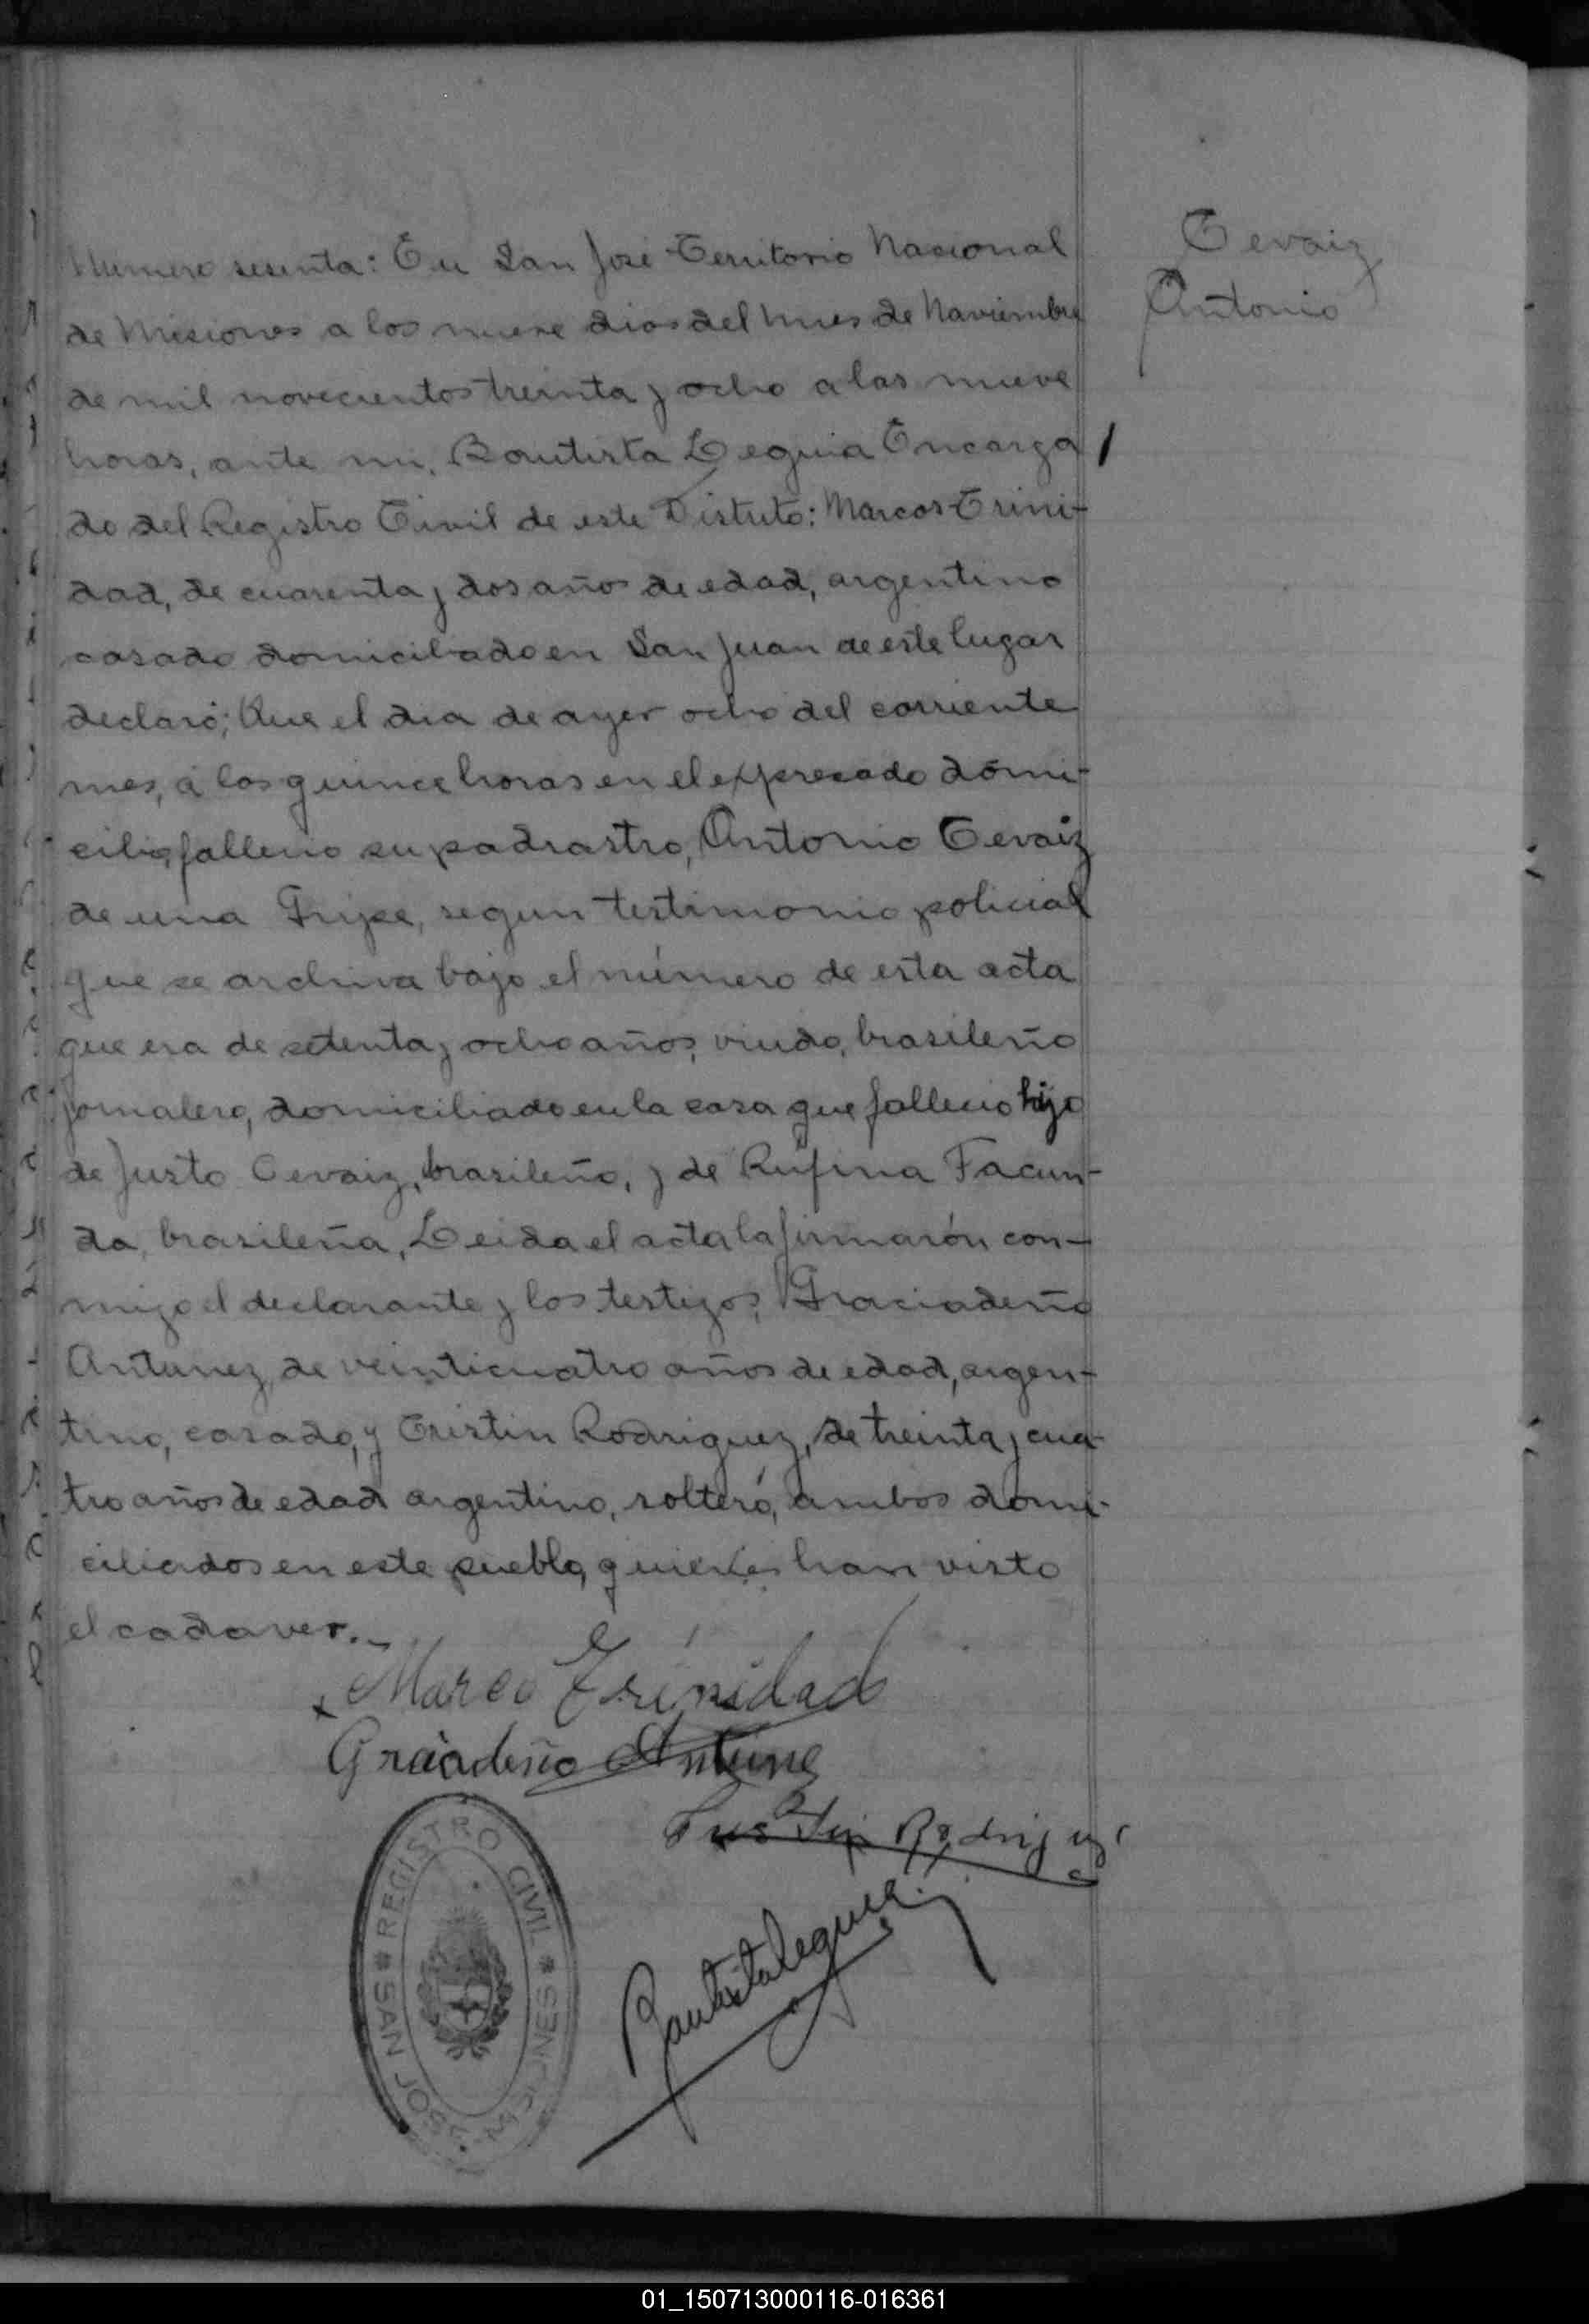 Numero sesenta: En San José Territorio Nacional
de Misiones a los nueve dias del mes de Noviembre
de mil novecientos treinta y ocho a las nueve
horas, ante mi, Bautista Leguia Encarga
do del Registro Civil de este Distrito: Marcos Trini-
dad, de cuarenta y dos años de edad, argentino
casado domiciliado en San Juan de este lugar
declaró; Que el dia de ayer ocho del corriente
mes, á las quince horas en el expresado domi-
cilio, fallecio su padrastro, Antonio Cevaiz
de una Gripe, segun testimonio policial
que se archiva bajo el número de esta acta
que era de setenta y ocho años, viudo, brasileño
jornalero, domiciliado en la casa que fallecio hijo
de Justo Cevaiz, brasileño, y de Rufina Facun-
da, brasileña, Leida el acta la firmarón con-
migo el declarante y los testigos, Graciadeño
Antunez, de veinticuatro años de edad, argen-
tino, casado, y Cristin Rodriguez, de treinta y cua-
tro años de edad argentino, solteró, ambos domi-
ciliados en este pueblo, quienes han visto
el cadaver._
Cevaiz
Antonio
x Marco Trinidad
Graciadeño Antune
Rodriguez
Bautista Leguia
REGISTRO CIVIL * MISIONES * SAN JOSE *
01_150713000116-016361